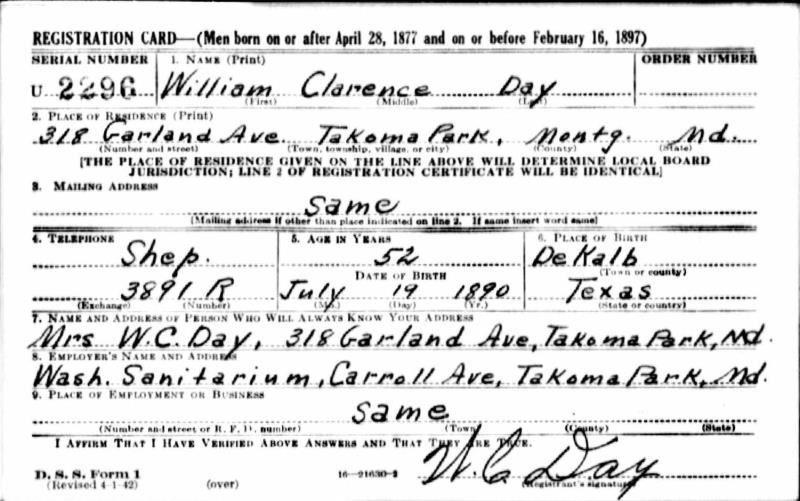 REGISTRATION CARD—(Men born on or after April 28, 1877 and on or before February 16, 1897)
SERIAL NUMBER 1. NAME (Print) ORDER NUMBER
U 2296 William Clarence Day
(First) (Middle) (Last)
2. PLACE OF RESIDENCE (Print)
318 Garland Ave. Takoma Park, Montg. Md.
(Number and street) (Town, township, village, or city) (County) (State)
[THE PLACE OF RESIDENCE GIVEN ON THE LINE ABOVE WILL DETERMINE LOCAL BOARD
JURISDICTION; LINE 2 OF REGISTRATION CERTIFICATE WILL BE IDENTICAL]
3. MAILING ADDRESS
Same
(Mailing address if other than place indicated on line 2. If same insert word same)
4. TELEPHONE 5. AGE IN YEARS 6. PLACE OF BIRTH
Shep. 52 DeKalb
DATE OF BIRTH (Town or county)
3891 R July 19 1890 Texas
(Exchange) (Number) (Mo.) (Day) (Yr.) (State or country)
7. NAME AND ADDRESS OF PERSON WHO WILL ALWAYS KNOW YOUR ADDRESS
Mrs. W.C. Day, 318 Garland Ave, Takoma Park, Md.
8. EMPLOYER'S NAME AND ADDRESS
Wash. Sanitarium, Carroll Ave, Takoma Park, Md.
9. PLACE OF EMPLOYMENT OR BUSINESS
Same
(Number and street or R. F. D. number) (Town) (County) (State)
I AFFIRM THAT I HAVE VERIFIED ABOVE ANSWERS AND THAT THEY ARE TRUE.
W. C. Day
D. S. S. Form 1 16—21630-2 (Registrant's signature)
(Revised 4-1-42) (over)